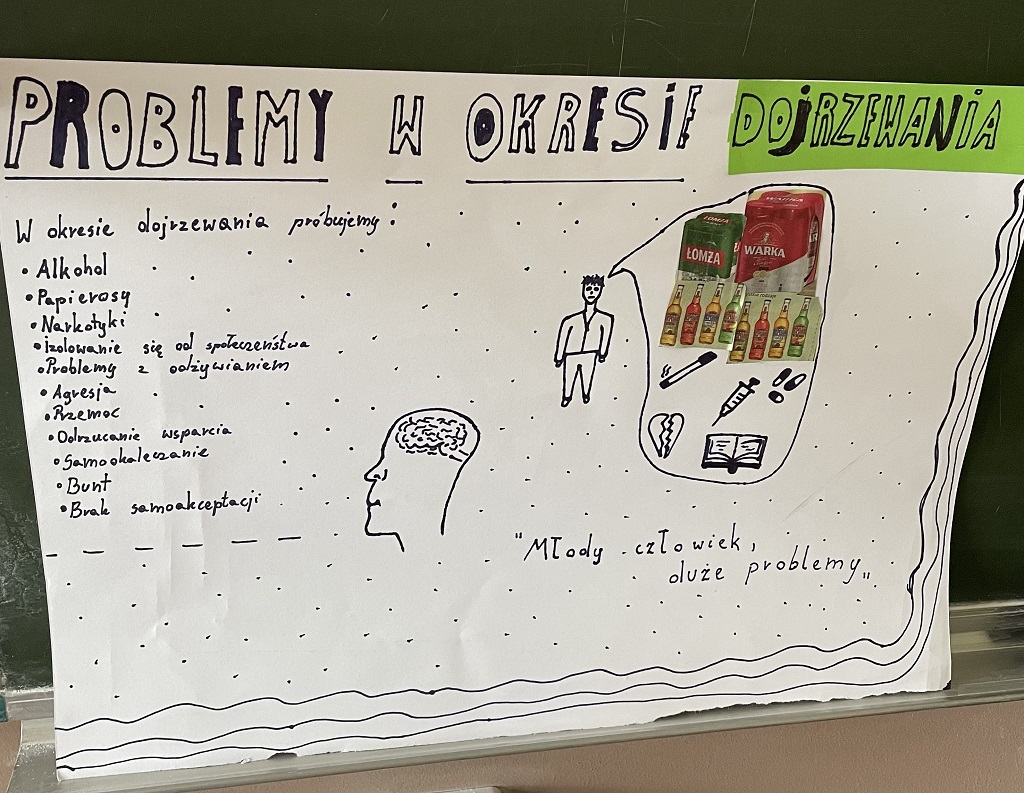 PROBLEMY W OKRESIE DOJRZEWANIA
W okresie dojrzewania próbujemy:
• Alkohol
• Papierosy
• Narkotyki
• izolowanie się od społeczeństwa
• Problemy z odżywianiem
• Agresja
• Przemoc
• Odrzucanie wsparcia
• Samookaleczanie
• Bunt
• Brak samoakceptacji
ŁOMŻA
WARKA
ŁOMŻA
WARKA
"Młody człowiek,
duże problemy„